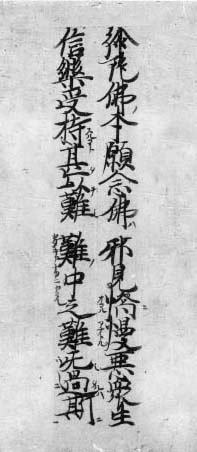 弥陀佛本願念佛 邪見憍慢悪衆生
信樂受持甚以難 難中之難无過斯